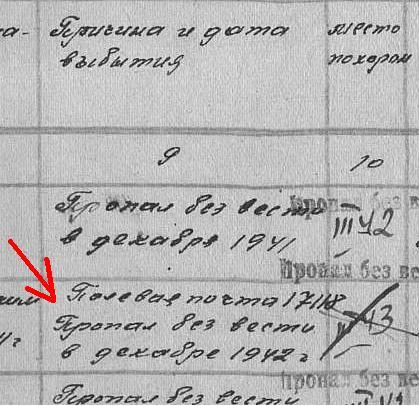 Причина и дата
выбытия
место
похорон
9
10
Пропал без вести
в декабре 1941
III 42
Пропал без ве
Полевая почта
Пропал без вести
в декабре 1942 г
43
Пропал без ве
Пропал без вести